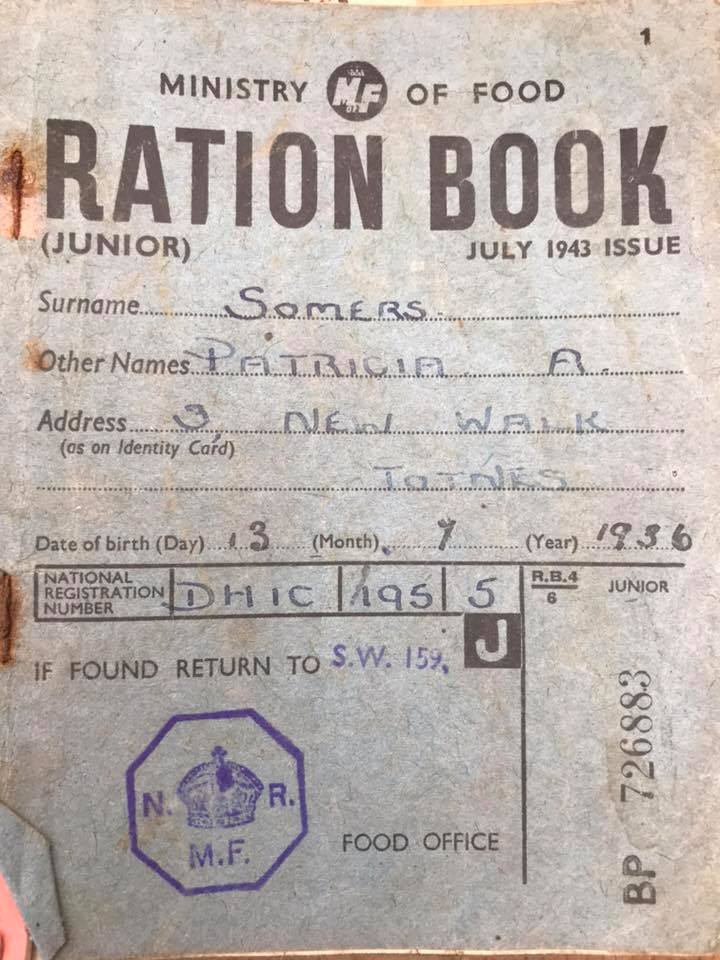 1
MINISTRY MF OF FOOD
RATION BOOK
(JUNIOR) JULY 1943 ISSUE
Surname SOMERS.
Other Names PATRICIA A.
Address 3, NEW WALK
(as on Identity Card)
TOTNES
Date of birth (Day) 13 (Month) 7 (Year) 1936
NATIONAL REGISTRATION NUMBER DHIC 195 5
R.B.4
6
JUNIOR
J
IF FOUND RETURN TO S.W. 159,
N. R.
M.F.
FOOD OFFICE
BP 726883